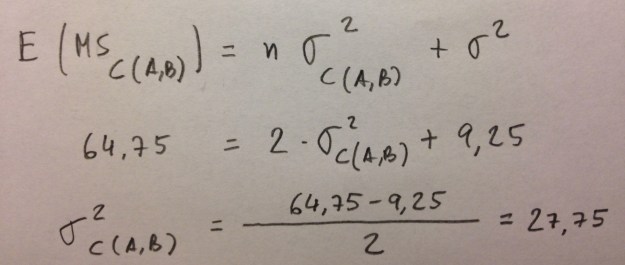 E (MS_{C(A,B)}) = n σ²_{C(A,B)} + σ²
64,75 = 2 · σ²_{C(A,B)} + 9,25
σ²_{C(A,B)} = \frac{64,75 - 9,25}{2} = 27,75